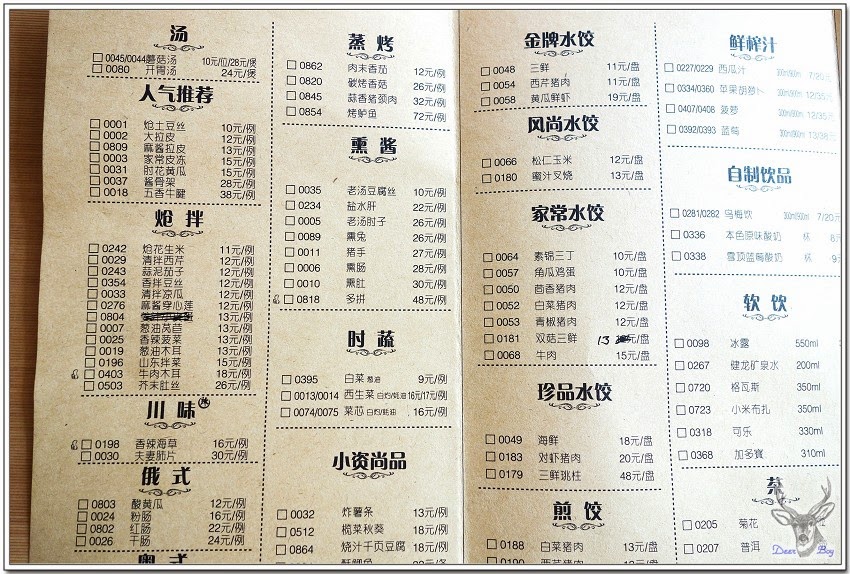 汤
0045/0044蘑菇汤 10元/位/28元/煲
0080 开胃汤 24元/煲
人气推荐
0001 炝土豆丝 10元/例
0002 大拉皮 12元/例
0809 麻酱拉皮 13元/例
0003 家常皮冻 15元/例
0031 肘花黄瓜 15元/例
0037 酱骨架 28元/例
0018 五香牛腱 38元/例
炝 拌
0242 炝花生米 11元/例
0029 清拌西芹 12元/例
0243 蒜泥茄子 12元/例
0354 香拌豆丝 12元/例
0033 清拌凉瓜 12元/例
0276 麻酱穿心莲 12元/例
0804 13元/例
0007 葱油莴苣 13元/例
0025 香辣菠菜 13元/例
0019 葱油木耳 13元/例
0196 山东拌菜 15元/例
0403 牛肉木耳 18元/例
0503 芥末肚丝 26元/例
川 味 辣
0198 香辣海草 16元/例
0030 夫妻肺片 30元/例
俄 式
0803 酸黄瓜 12元/例
0024 粉肠 16元/例
0802 红肠 22元/例
0026 干肠 24元/例
蒸 烤
0862 肉末香茄 12元/例
0820 碳烤香菇 26元/例
0845 蒜香猪颈肉 32元/例
0854 烤鲈鱼 72元/例
熏 酱
0035 老汤豆腐丝 10元/例
0234 盐水肝 22元/例
0005 老汤肘子 26元/例
0089 熏兔 26元/例
0011 猪手 27元/例
0006 熏肠 28元/例
0010 熏肚 30元/例
0818 多拼 48元/例
时 蔬
0395 白菜 葱油 9元/例
0013/0014 西生菜 白灼/蚝油 16元/17元/例
0074/0075 菜芯 白灼/蚝油 16元/例
小资尚品
0032 炸薯条 13元/例
0512 榄菜秋葵 18元/例
0864 烧汁千页豆腐 18元/例
金牌水饺
0048 三鲜 11元/盘
0054 西芹猪肉 11元/盘
0058 黄瓜鲜虾 19元/盘
风尚水饺
0066 松仁玉米 12元/盘
0180 蜜汁叉烧 13元/盘
家常水饺
0064 素锦三丁 10元/盘
0057 角瓜鸡蛋 10元/盘
0050 茴香猪肉 12元/盘
0052 白菜猪肉 12元/盘
0053 青椒猪肉 12元/盘
0181 双菇三鲜 13 元/盘
0068 牛肉 15元/盘
珍品水饺
0049 海鲜 18元/盘
0183 对虾猪肉 20元/盘
0179 三鲜瑶柱 48元/盘
煎 饺
0188 白菜猪肉 13元/盘
鲜榨汁
0227/0229 西瓜汁 300ml/900ml 7/20元
0334/0360 苹果胡萝卜 300ml/900ml 12/35元
0407/0408 菠萝 300ml/900ml 12/35元
0392/0393 蓝莓 300ml/900ml 13/38元
自制饮品
0281/0282 乌梅饮 300ml/900ml 7/20元
0336 本色原味酸奶 杯 8元
0338 雪顶蓝莓酸奶 杯 9
软 饮
0098 冰露 550ml
0267 健龙矿泉水 200ml
0720 格瓦斯 350ml
0723 小米布扎 350ml
0318 可乐 330ml
0368 加多寶 310ml
茶
0205 菊花
0207 普洱
Deer Boy